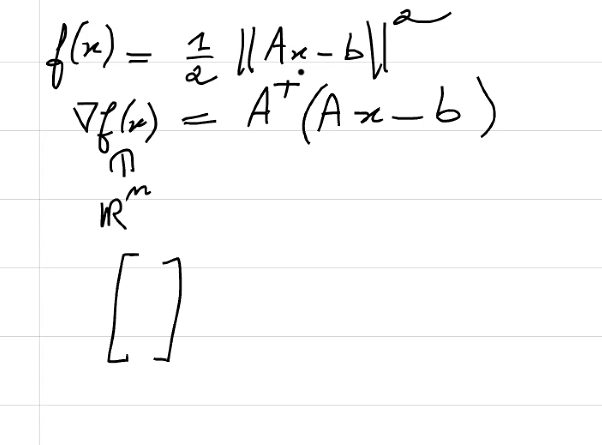 f(x) = 1/2 ||Ax - b||²
∇f(x) = Aᵀ(Ax - b)
∩
ℝⁿ
[ ]